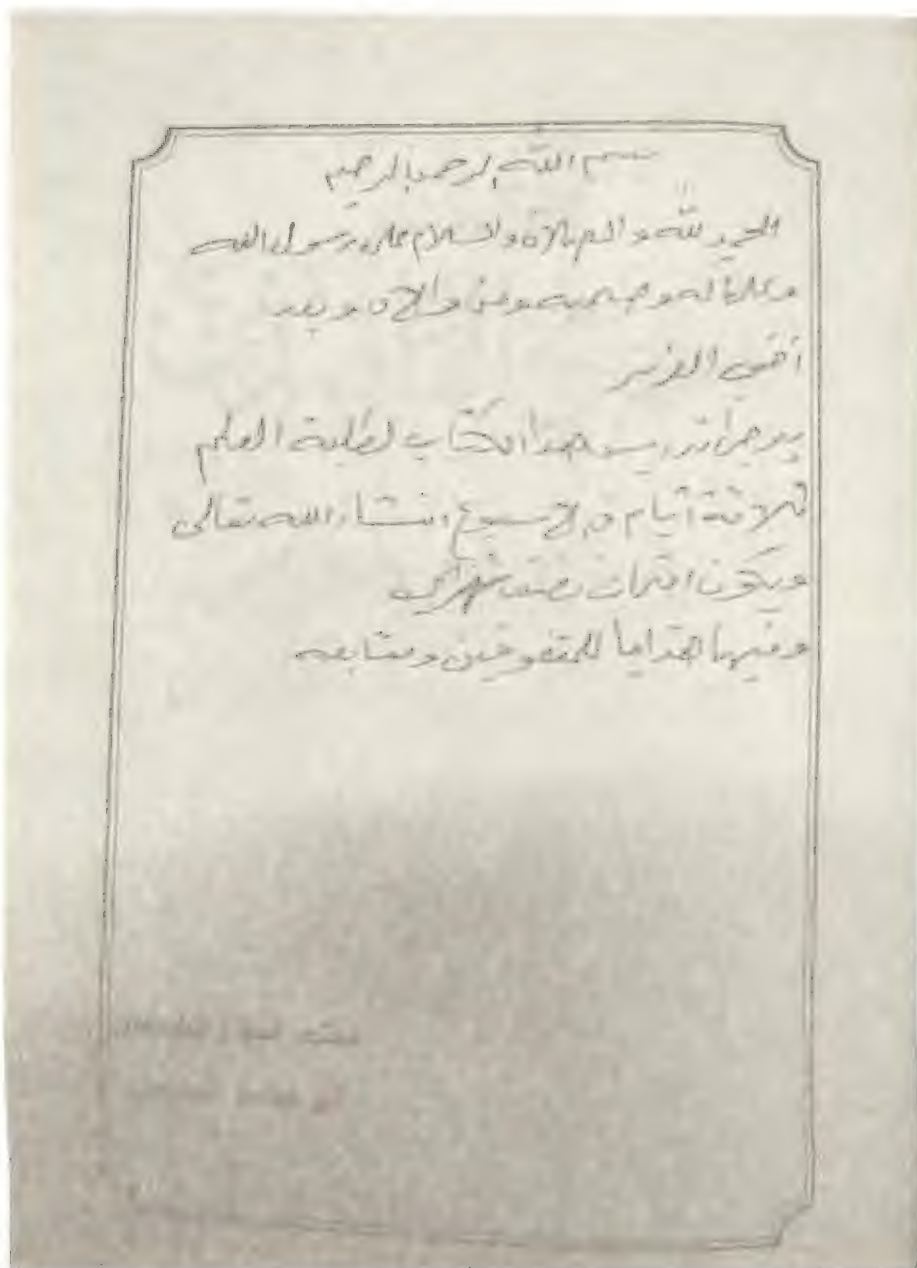 بسم الله الرحمن الرحيم
الحمد لله والصلاة والسلام على رسول الله
وعلى آله وصحبه ومن والاه وبعد
أخي العزيز
يرجى تدريس هذا الكتاب لطلبة العلم
ثلاثة أيام في الاسبوع انشاء الله تعالى
ويكون امتحان نصف شهراي
وفيها هدايا للمتفوقين ومتابعه